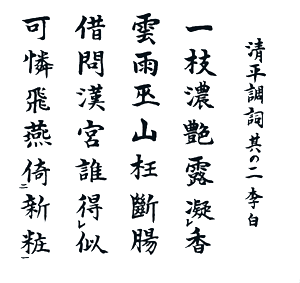 清平調詞 其の二 李白
一枝濃艶露凝レ香
雲雨巫山枉斷腸
借問漢宮誰得レ似
可憐飛燕倚二新粧一